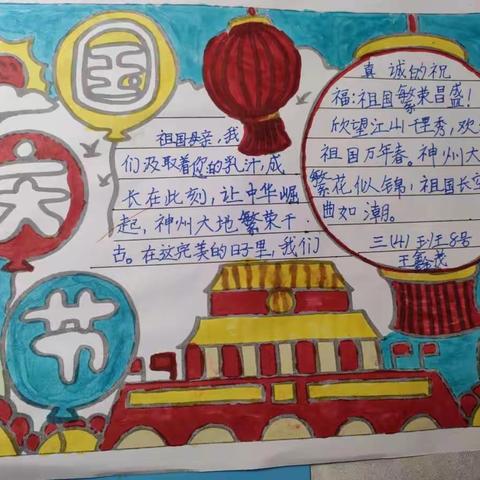 国
庆
节
祖国母亲,我
们汲取着你的乳汁,成
长在此刻,让中华崛
起,神州大地繁荣千
古。在这完美的日子里,我们
真诚的祝
福:祖国繁荣昌盛!
欣望江山千里秀,欢
祖国万年春。神州大
繁花似人锦,祖国长空
曲如潮。
三(4)班8号
王鑫茂